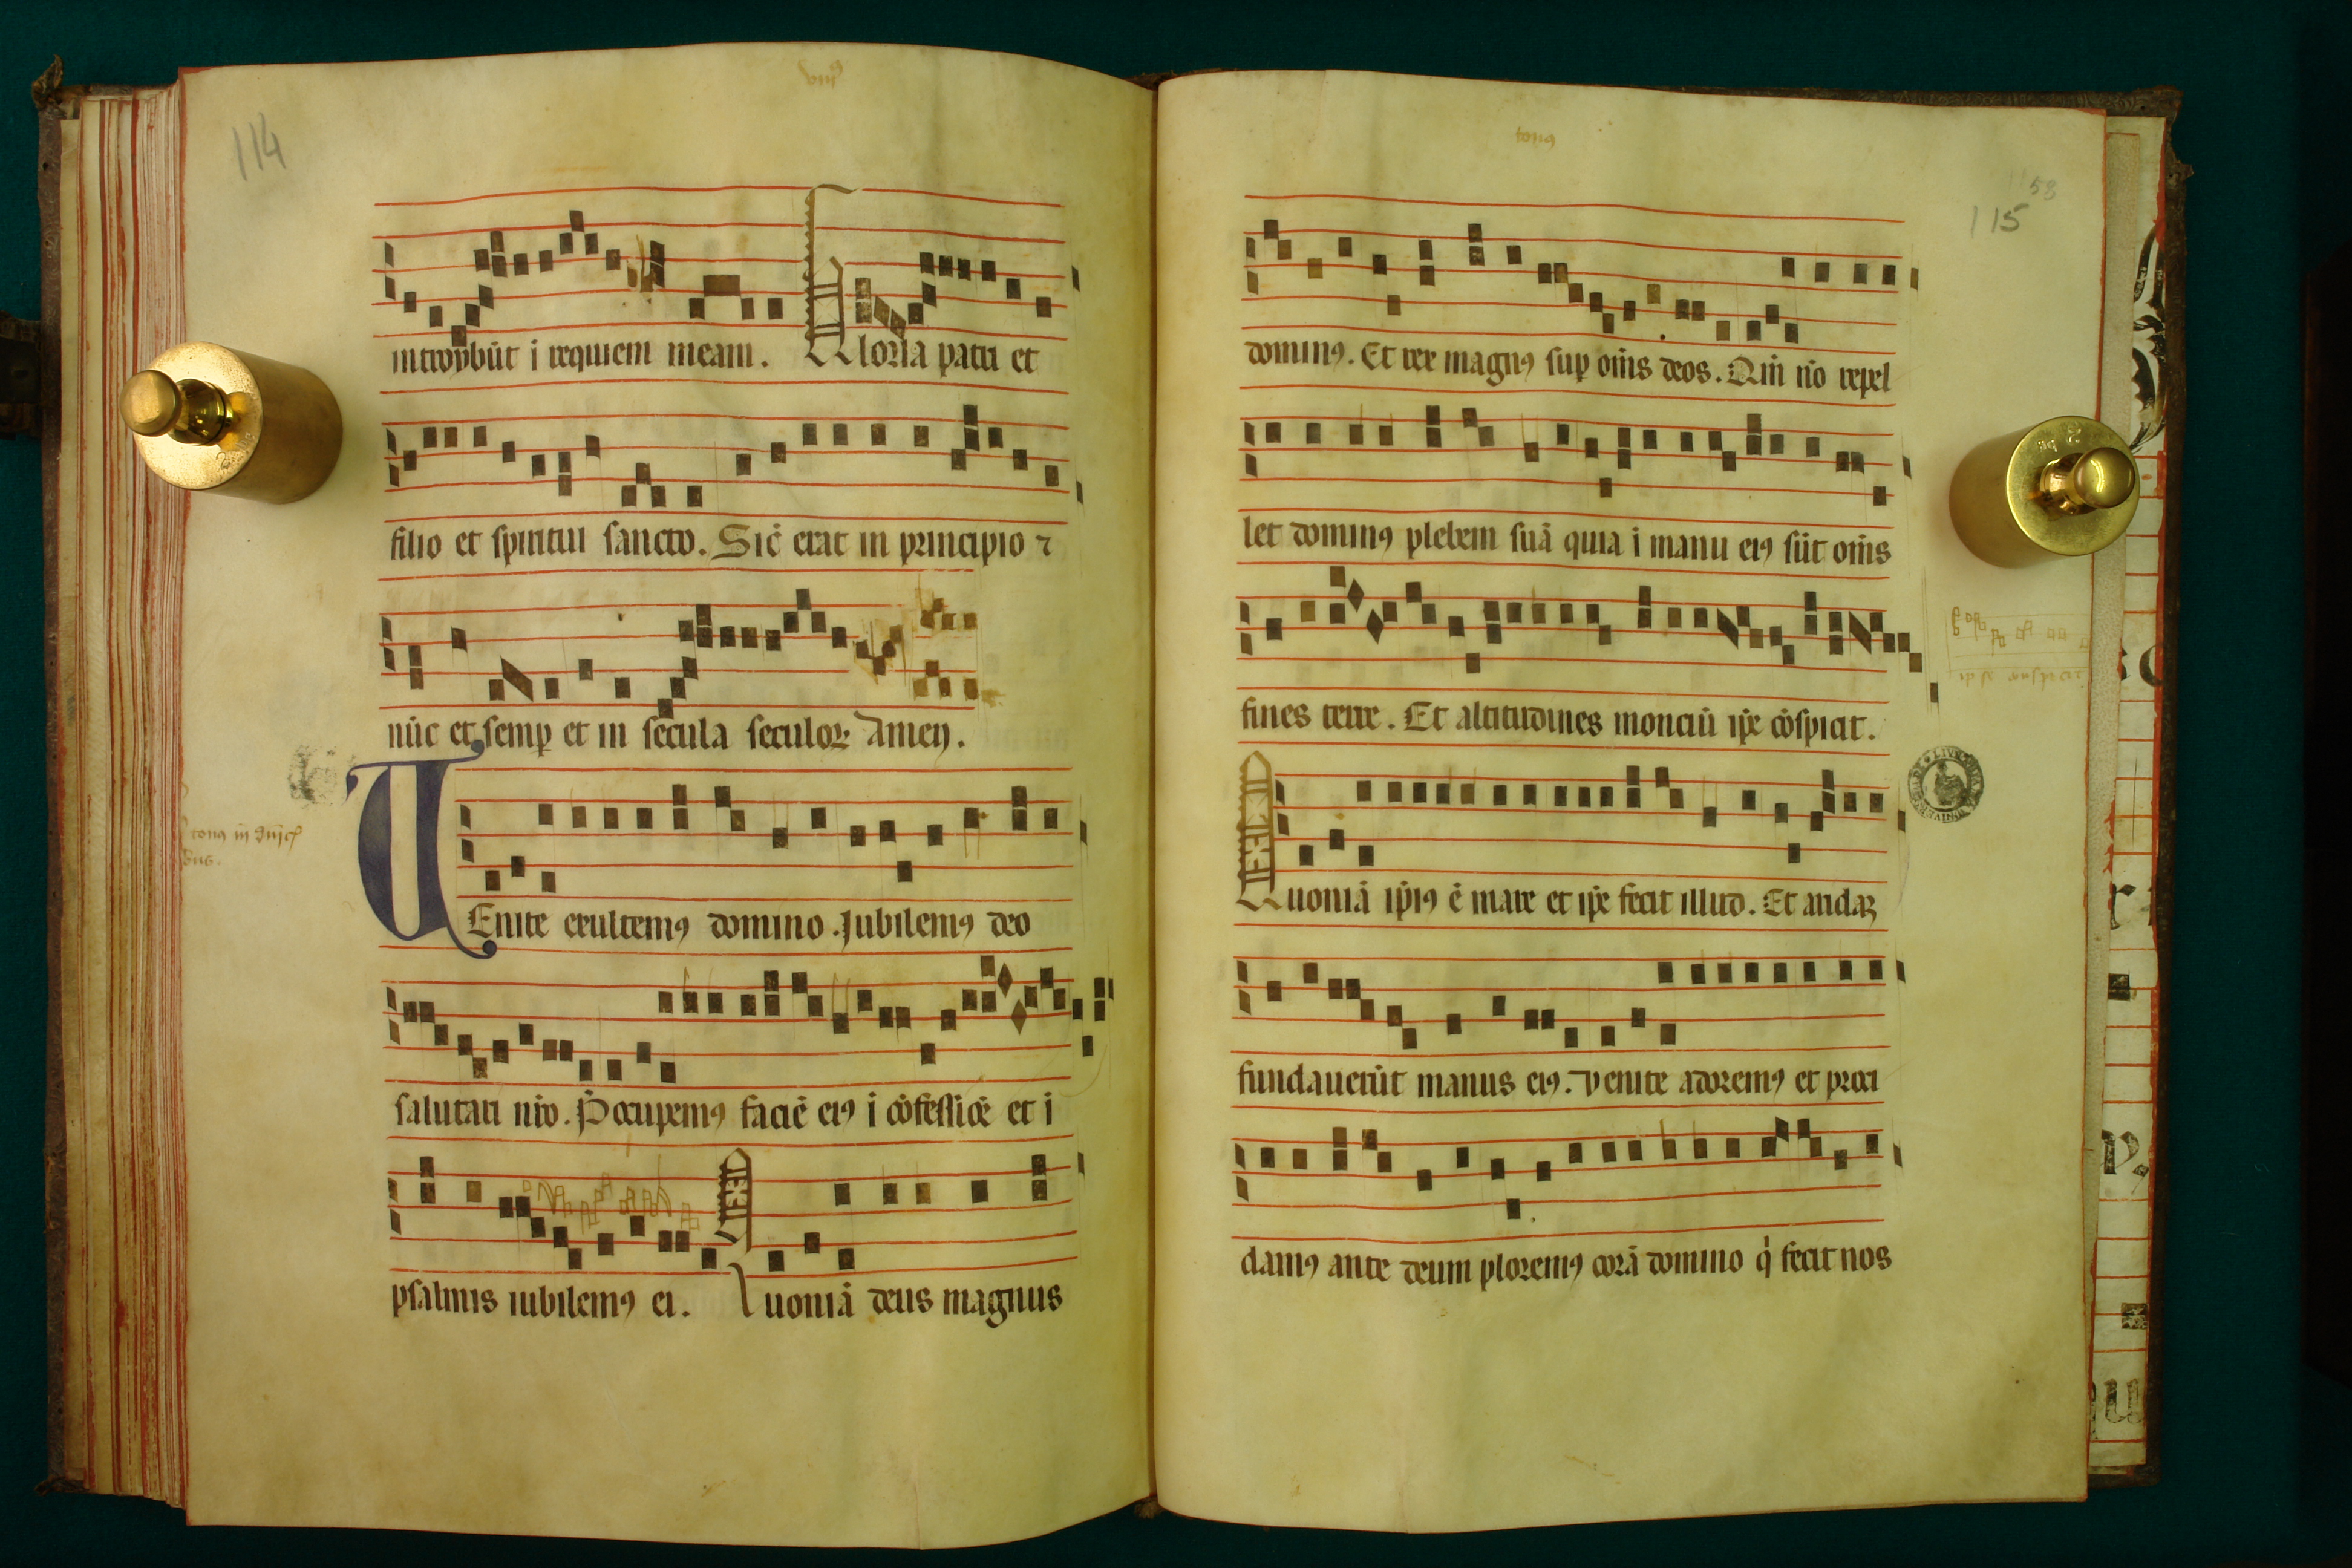 114
viiiꝰ
introybūt i requiem meam. Gloria patri et
filio et spiritui sancto. Sic̄ erat in principio ⁊
nūc et semꝑ et in secula seculoꝝ Amen.
tonꝰ
VEnite exultemꝰ domino. Iubilemꝰ deo
salutari nr̄o. P̄occupemꝰ faciē eiꝰ i cōfessiōe et i
psalmis iubilemꝰ ei. Quoniā deus magnus
tonꝰ
58
115
dominꝰ. Et rex magnꝰ suꝑ om̄is deos. Qm̄ nō repel
let dominꝰ plebem suā quia i manu eiꝰ sūt om̄is
fines terre. Et altitudines monciū ip̄e cōspicit.
ip̄se conspicit
Quoniā ip̄iꝰ ē mare et ip̄e fecit illud. Et aridaꝫ
fundauerūt manus eiꝰ. Venite adoremꝰ et proci
damꝰ ante deum ploremꝰ corā domino q̇ fecit nos